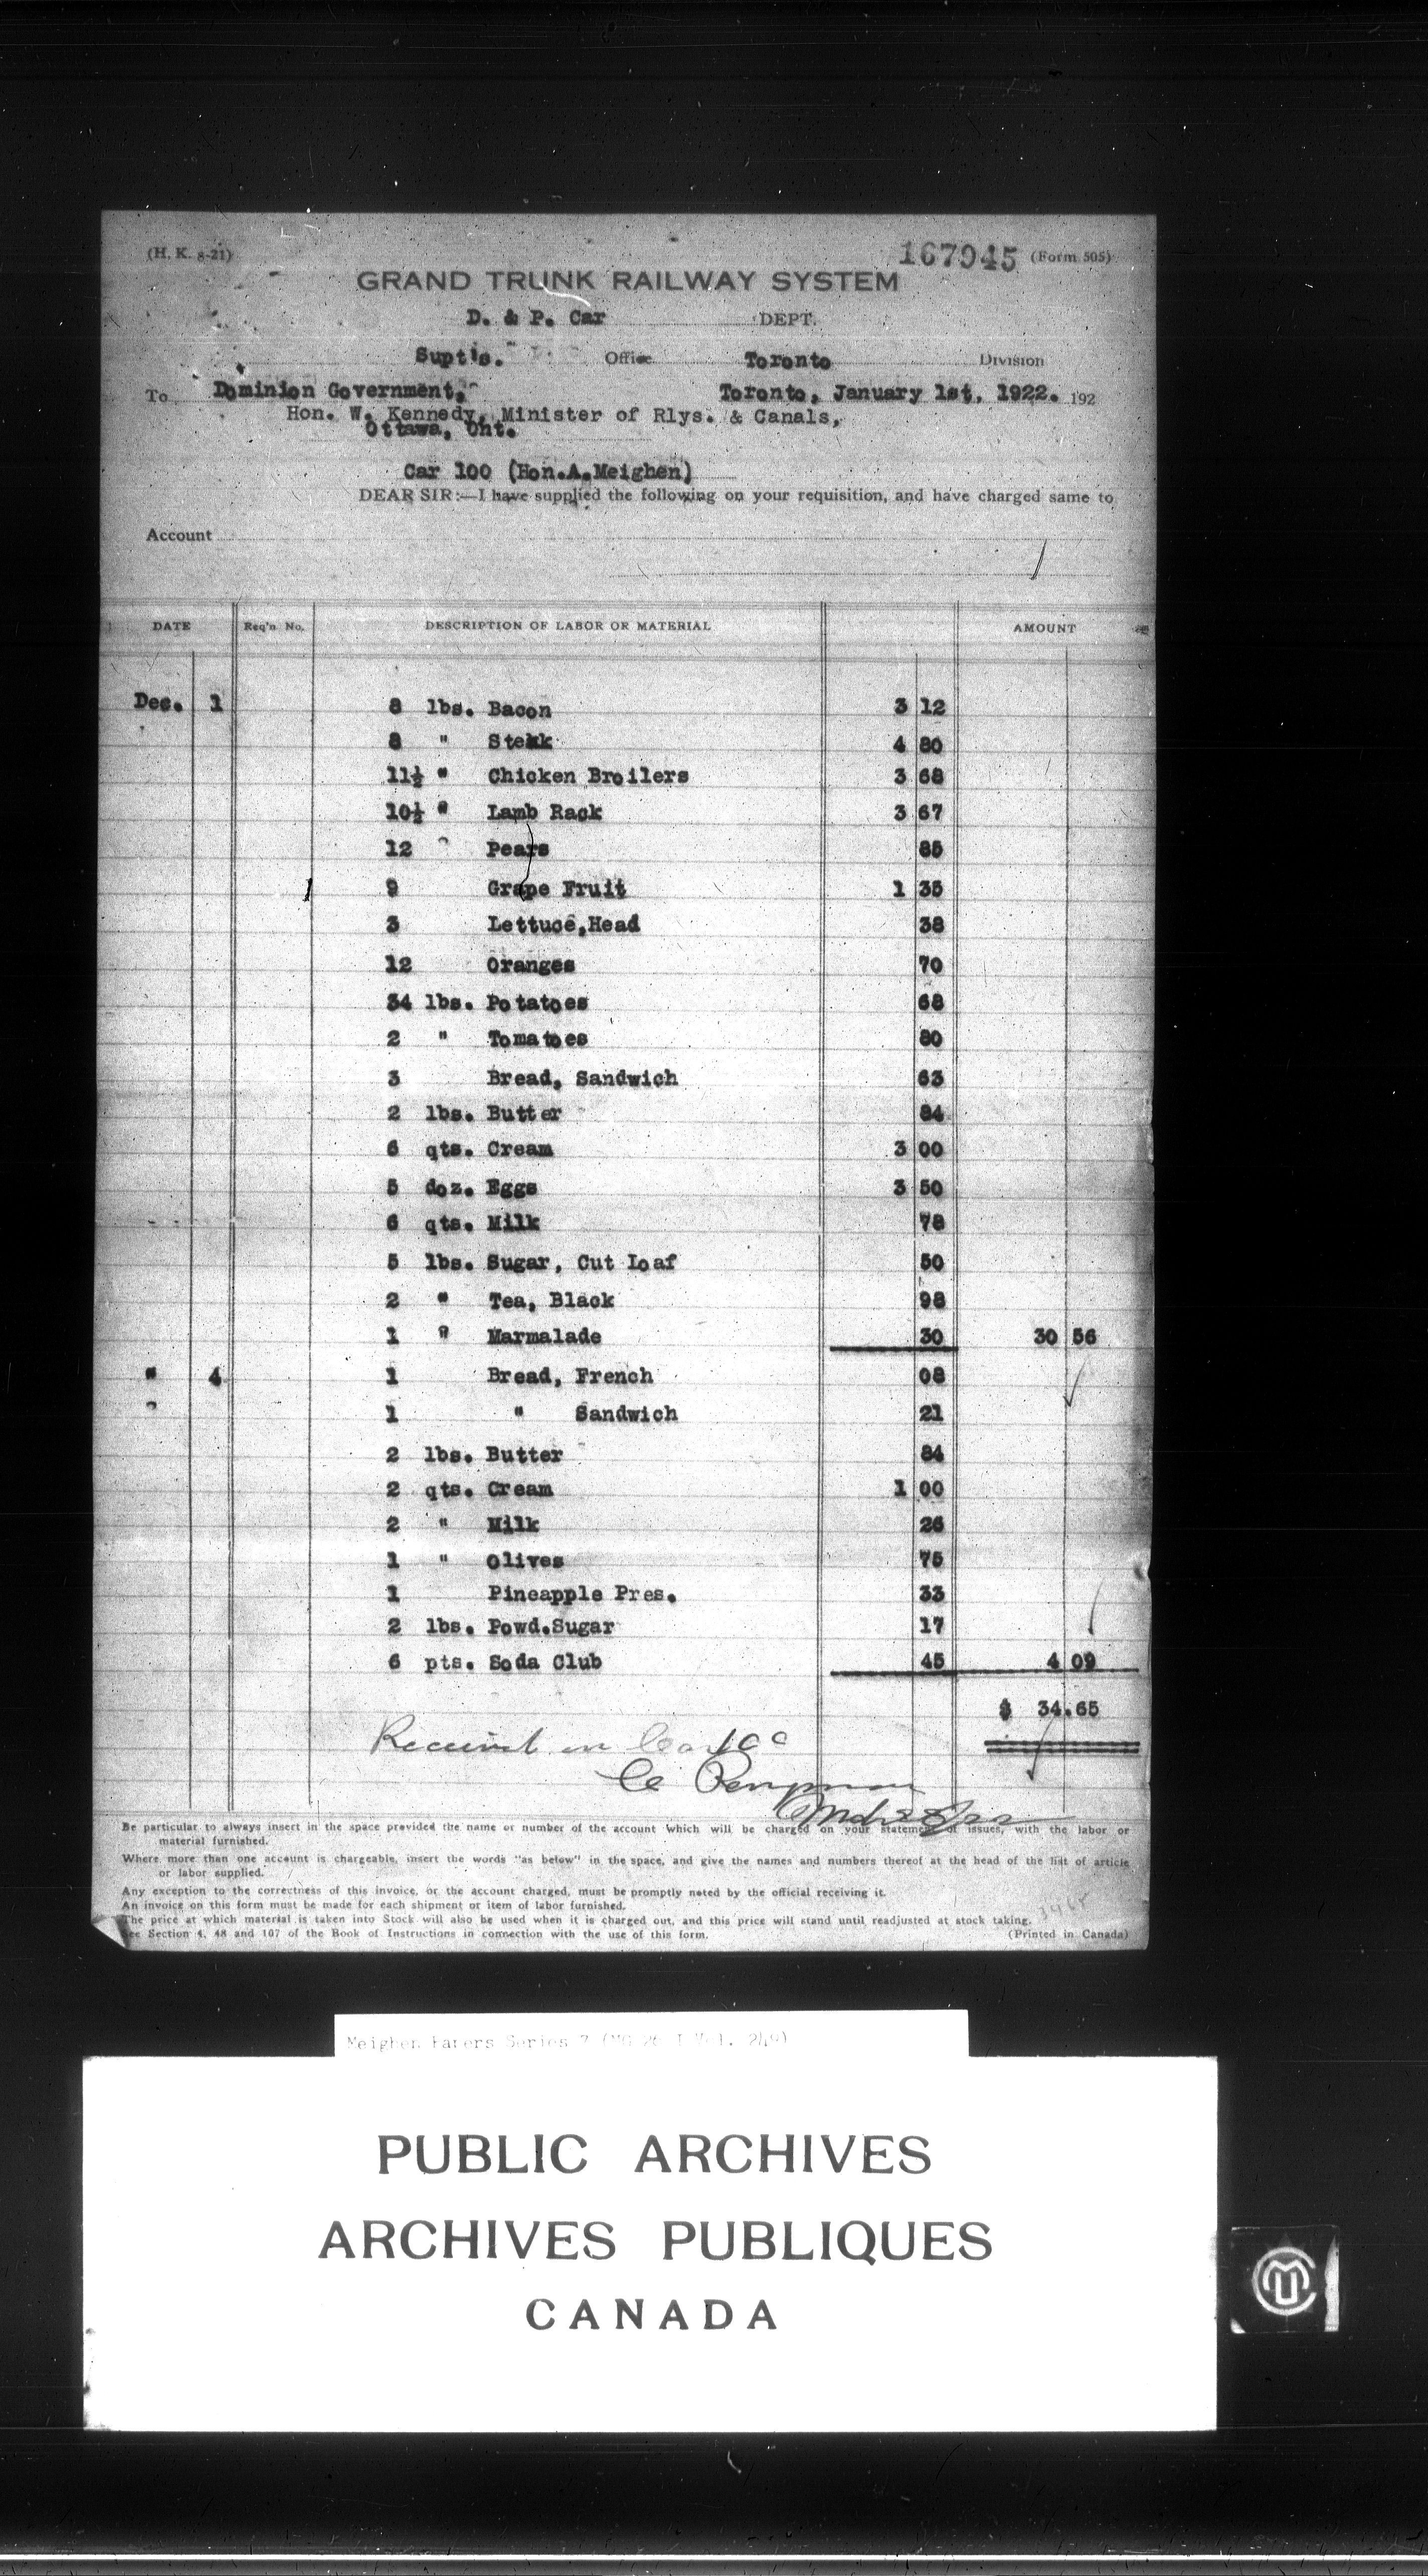 (H. K. 8-21)
167945 (Form 505)
GRAND TRUNK RAILWAY SYSTEM
D. & P. Car DEPT.
Supt's. Office Toronto Division
To Dominion Government, Toronto, January 1st, 1922. 192
Hon. W. Kennedy, Minister of Rlys. & Canals,
Ottawa, Ont.
Car 100 (Hon.A.Meighen)
DEAR SIR:—I have supplied the following on your requisition, and have charged same to
Account
DATE Req'n No. DESCRIPTION OF LABOR OR MATERIAL AMOUNT
Dec. 1 8 lbs. Bacon 3 12
8 " Steak 4 80
11½ " Chicken Broilers 3 68
10½ " Lamb Rack 3 67
12 Pears 85
9 Grape Fruit 1 35
3 Lettuce,Head 38
12 Oranges 70
34 lbs. Potatoes 68
2 " Tomatoes 80
3 Bread, Sandwich 63
2 lbs. Butter 84
6 qts. Cream 3 00
5 doz. Eggs 3 50
6 qts. Milk 78
5 lbs. Sugar, Cut Loaf 50
2 " Tea, Black 98
1 " Marmalade 30 30 56
" 4 1 Bread, French 08
1 " Sandwich 21
2 lbs. Butter 84
2 qts. Cream 1 00
2 " Milk 26
1 " Olives 75
1 Pineapple Pres. 33
2 lbs. Powd.Sugar 17
6 pts. Soda Club 45 4 09
$ 34.65
Received on Car 100
Be particular to always insert in the space provided the name or number of the account which will be charged on your statement of issues, with the labor or
material furnished.
Where more than one account is chargeable, insert the words "as below" in the space, and give the names and numbers thereof at the head of the list of article
or labor supplied.
Any exception to the correctness of this invoice, or the account charged, must be promptly noted by the official receiving it.
An invoice on this form must be made for each shipment or item of labor furnished.
The price at which material is taken into Stock will also be used when it is charged out, and this price will stand until readjusted at stock taking.
See Section 4, 48 and 107 of the Book of Instructions in connection with the use of this form. (Printed in Canada)
Meighen Papers Series 7 (MG 26 I Vol. 249)
PUBLIC ARCHIVES
ARCHIVES PUBLIQUES
CANADA